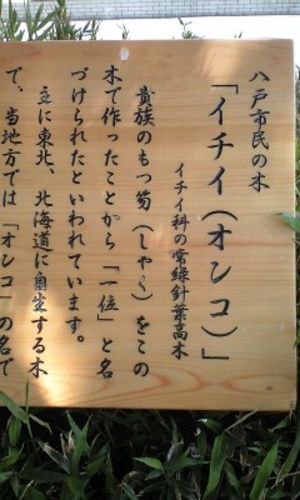 八戸市民の木
「イチイ(オンコ)」
イチイ科の常緑針葉高木
貴族のもつ笏(しゃく)をこの
木で作ったことから「一位」と名
づけられたといわれています。
主に東北、北海道に自生する木
で、当地方では「オンコ」の名で